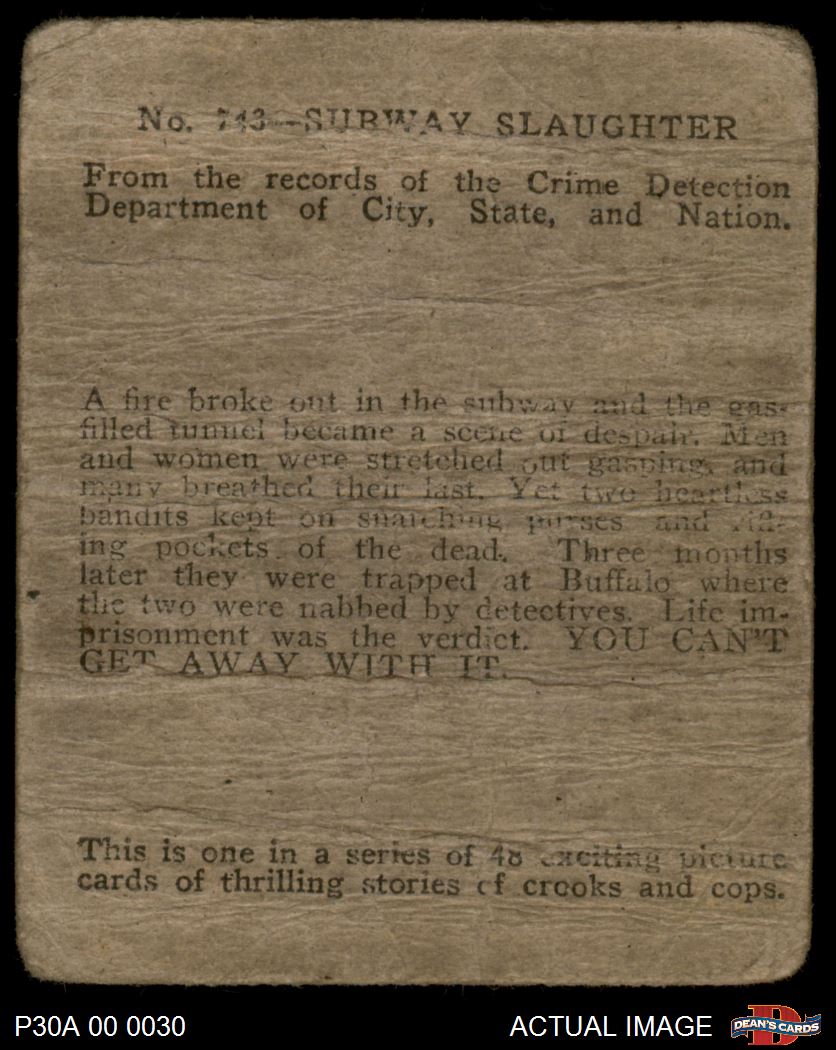 No. 743—SUBWAY SLAUGHTER
From the records of the Crime Detection
Department of City, State, and Nation.
A fire broke out in the subway and the gas-
filled tunnel became a scene of despair. Men
and women were stretched out gasping, and
many breathed their last. Yet two heartless
bandits kept on snatching purses and rifl-
ing pockets of the dead. Three months
later they were trapped at Buffalo where
the two were nabbed by detectives. Life im-
prisonment was the verdict. YOU CAN'T
GET AWAY WITH IT.
This is one in a series of 48 exciting picture
cards of thrilling stories of crooks and cops.
P30A 00 0030
ACTUAL IMAGE
D
DEAN'S CARDS